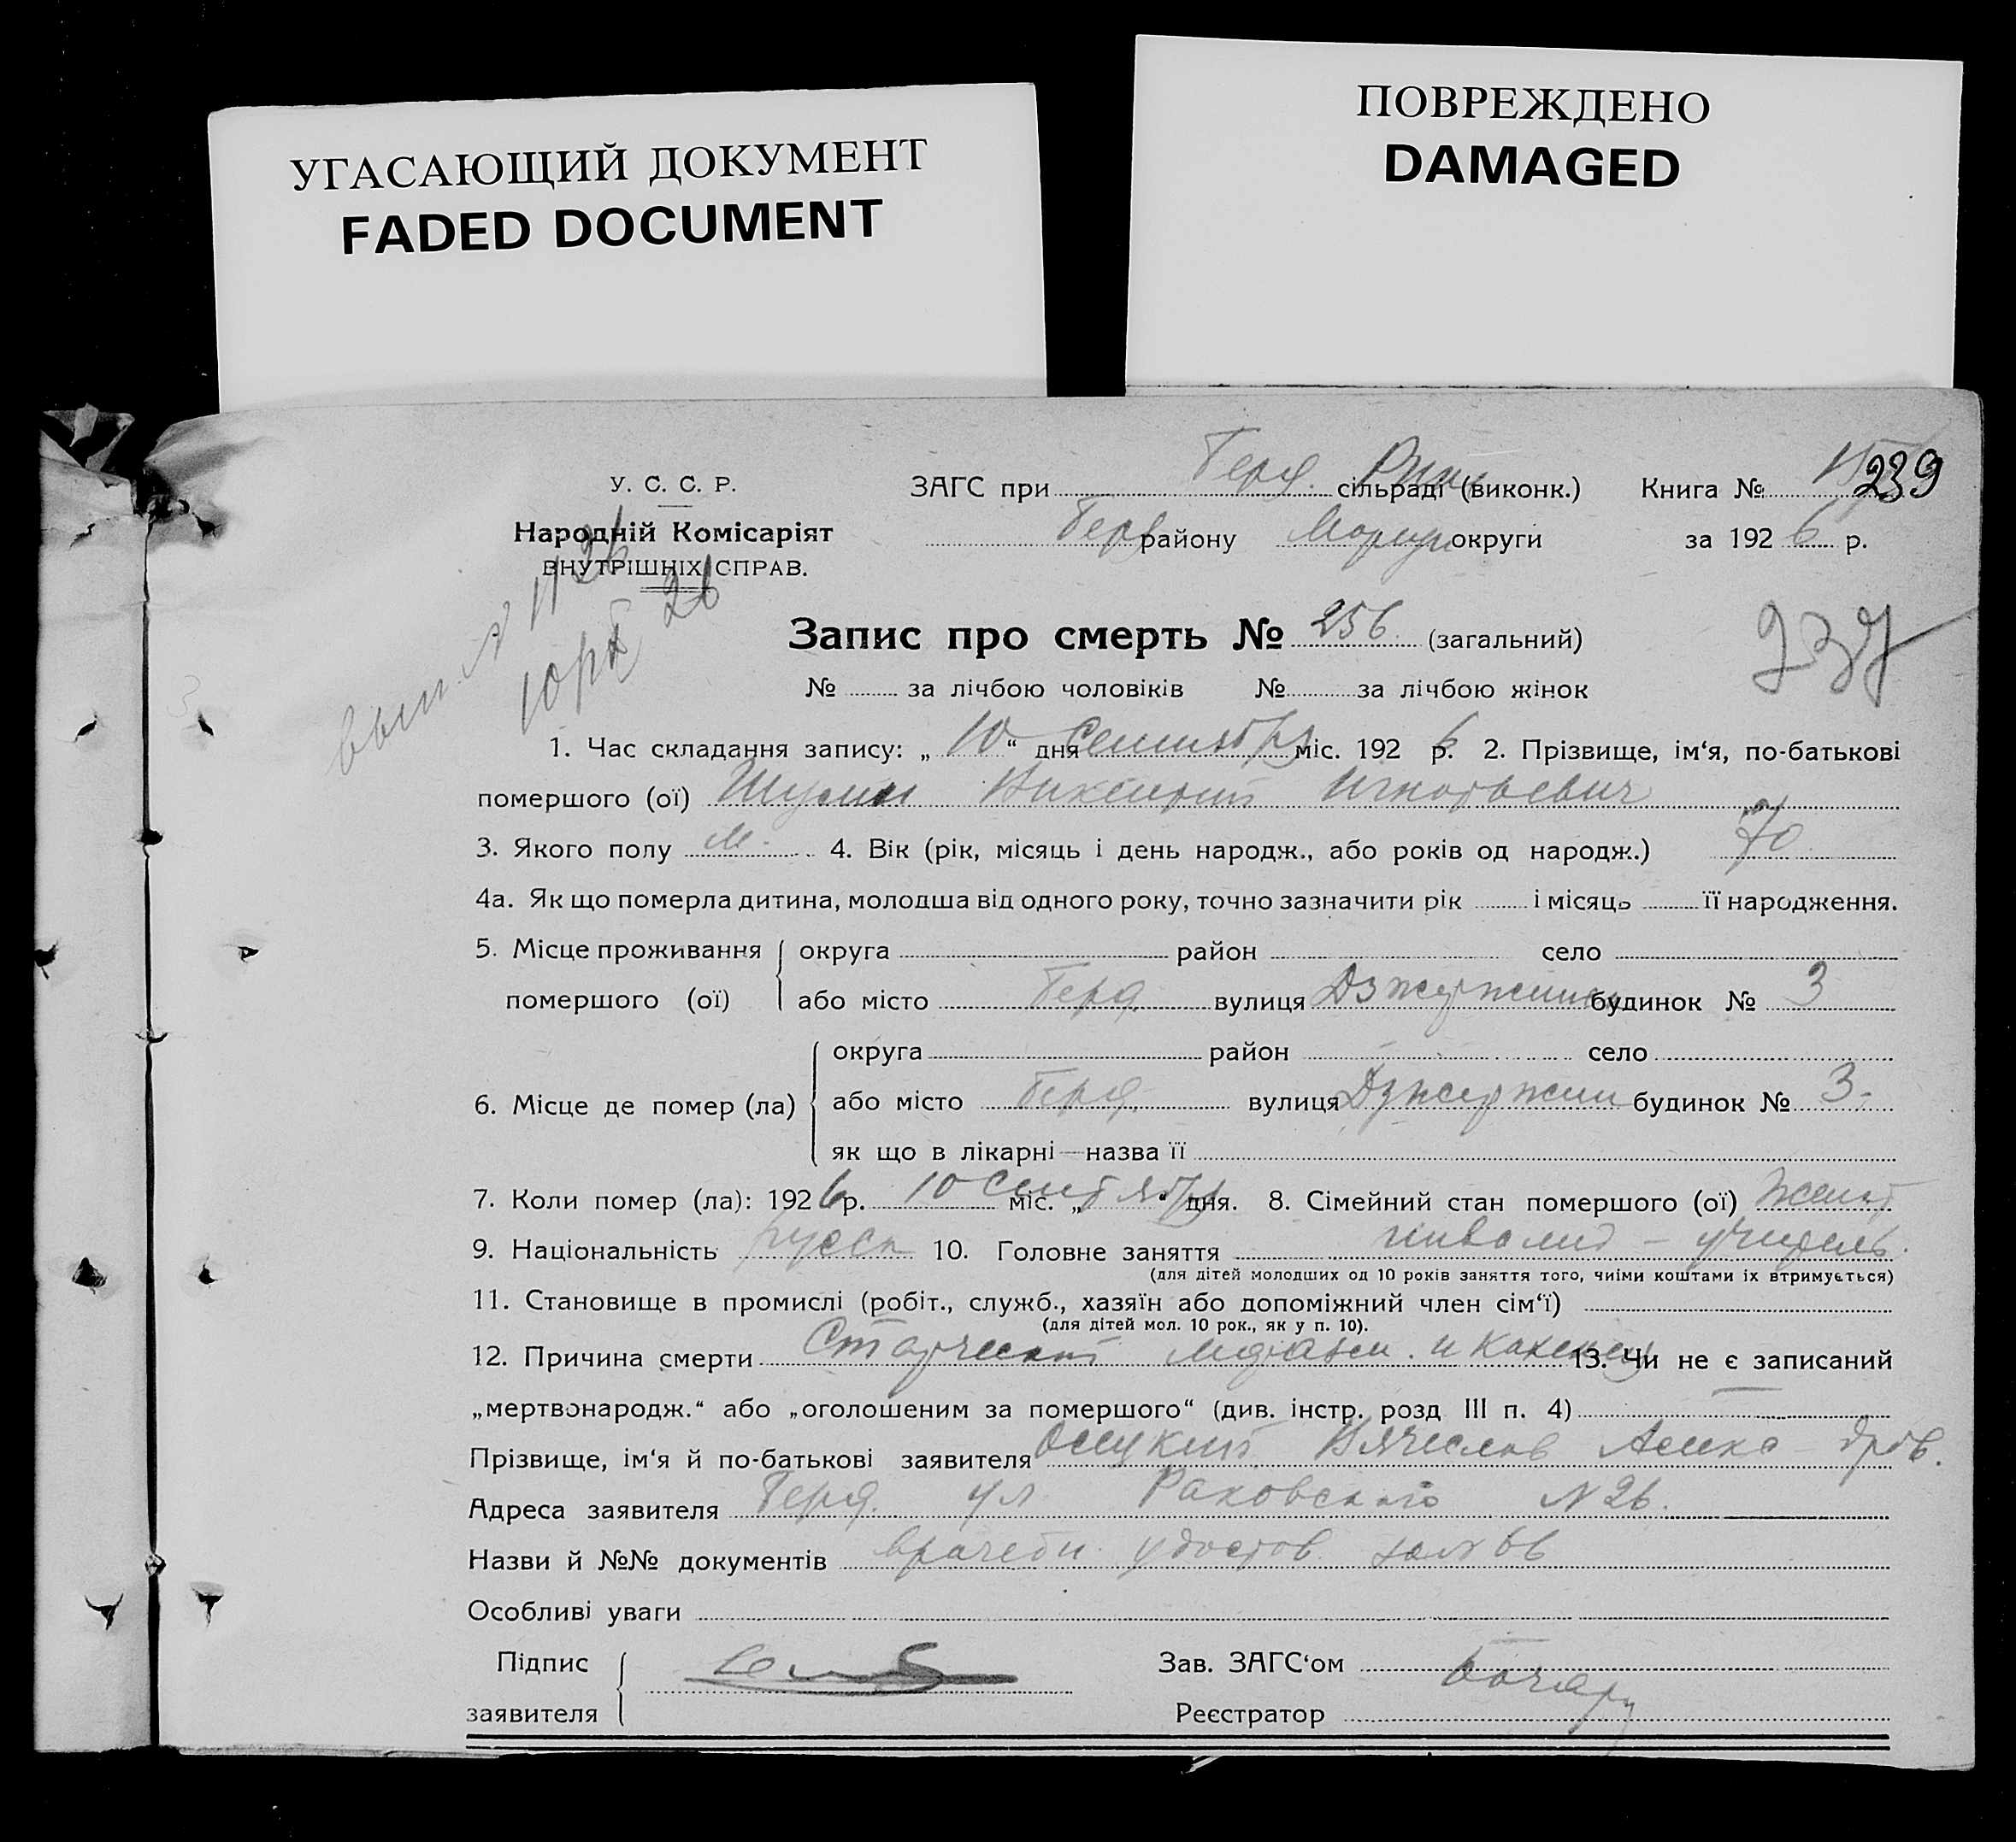 УГАСАЮЩИЙ ДОКУМЕНТ
FADED DOCUMENT
ПОВРЕЖДЕНО
DAMAGED
У. С. С. Р.
Народній Комісаріят
ВНУТРІШНІХ СПРАВ.
ЗАГС при Берд. сільраді (виконк.) Книга № 239
Берд району Мариуп округи за 1926 р.
237
Запис про смерть № 256 (загальний)
№ за лічбою чоловіків № за лічбою жінок
1. Час складання запису: „ 10 “ дня Сентября міс. 1926 р. 2. Прізвище, ім‘я, по-батькові
помершого (ої) Викентий Игнатьевич
3. Якого полу м. 4. Вік (рік, місяць і день народж., або років од народж.) 70
4а. Як що померла дитина, молодша від одного року, точно зазначити рік і місяць її народження.
5. Місце проживання округа район село
помершого (ої) або місто Берд. вулиця Дзержинск будинок № 3
округа район село
6. Місце де помер (ла) або місто Берд. вулиця Дзержин будинок № 3.
як що в лікарні—назва її
7. Коли помер (ла): 1926 р. 10 Сентября міс. „ “ дня. 8. Сімейний стан помершого (ої) женат
9. Національність русск 10. Головне заняття инвалид – учитель.
(для дітей молодших од 10 років заняття того, чиїми коштами їх втримується)
11. Становище в промислі (робіт., служб., хазяїн або допоміжний член сім‘ї)
(для дітей мол. 10 рок., як у п. 10).
12. Причина смерти Старческий маразм. и 13. Чи не є записаний
„мертвонародж.“ або „оголошеним за помершого“ (див. інстр. розд III п. 4) —
Прізвище, ім‘я й по-батькові заявителя Вячеслав
Адреса заявителя Берд. ул Раковского N 26.
Назви й №№ документів врачебн. удостов. 66
Особливі уваги
Підпис
заявителя
Зав. ЗАГС‘ом
Реєстратор